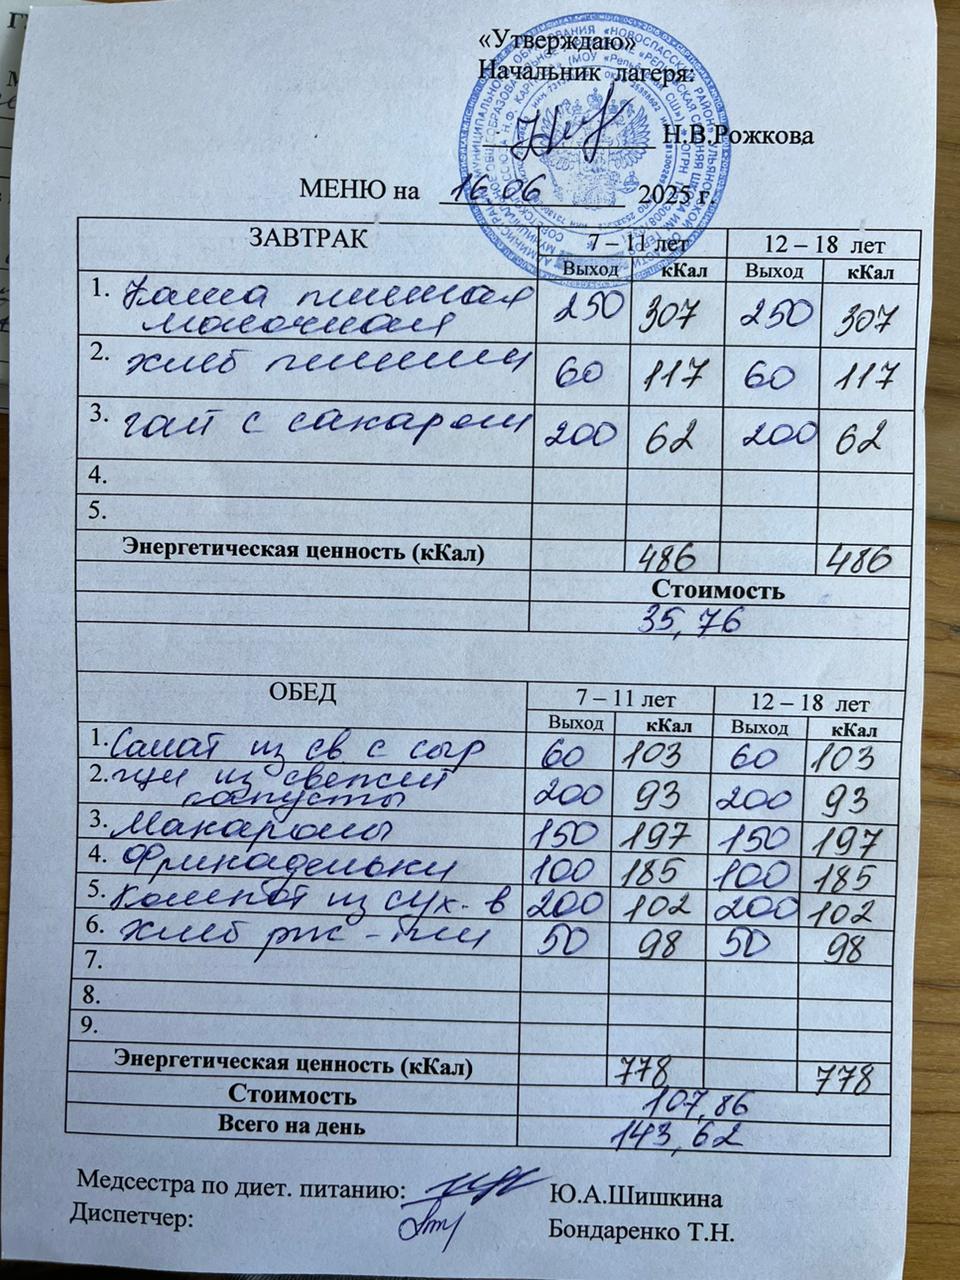 «Утверждаю»
Начальник лагеря:
Н.В.Рожкова
МЕНЮ на 16.06 2025 г.
ЗАВТРАК 7 – 11 лет 12 – 18 лет
Выход кКал Выход кКал
1. Каша пшенная 250 307 250 307
молочная
2. хлеб пшенич 60 117 60 117
3. чай с сахаром 200 62 200 62
4.
5.
Энергетическая ценность (кКал) 486 486
Стоимость
35,76
ОБЕД 7 – 11 лет 12 – 18 лет
Выход кКал Выход кКал
1. Салат из св с сыр 60 103 60 103
2. щи из свежей 200 93 200 93
капусты
3. Макароны 150 197 150 197
4. Фрикадельки 100 185 100 185
5. Компот из сух. в 200 102 200 102
6. Хлеб рж - пш 50 98 50 98
7.
8.
9.
Энергетическая ценность (кКал) 778 778
Стоимость 107,86
Всего на день 143,62
Медсестра по диет. питанию: Ю.А.Шишкина
Диспетчер: Бондаренко Т.Н.